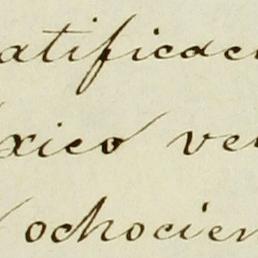 atificaci
xico ve
ochocien